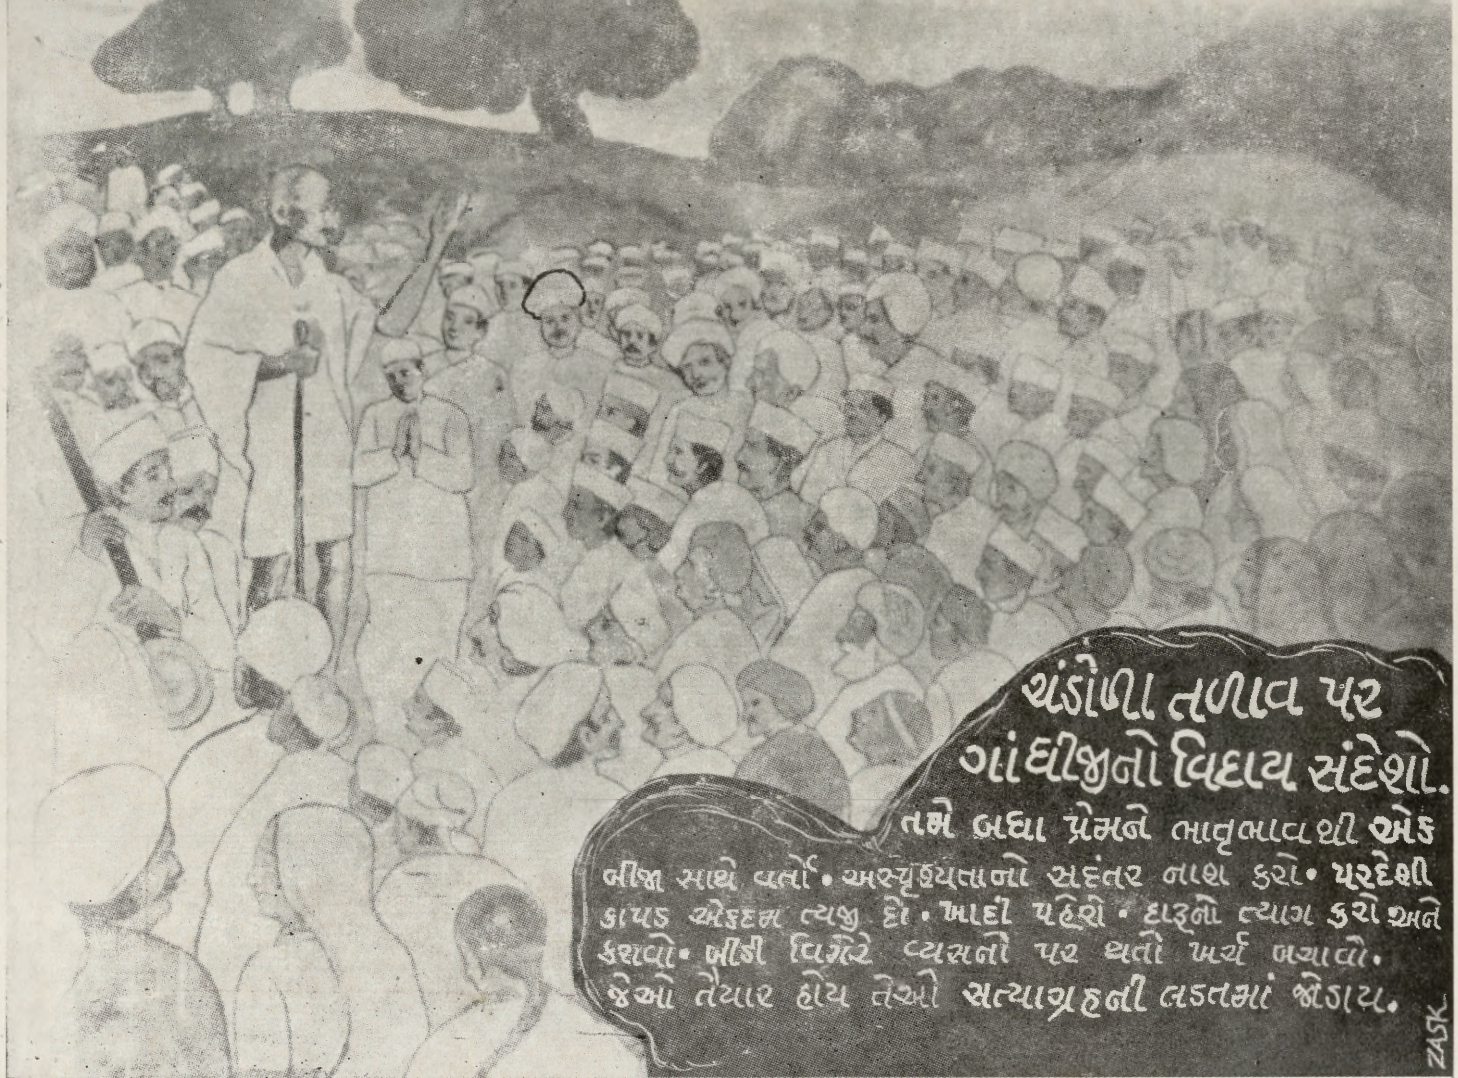 ચંડોળા તળાવ પર
ગાંધીજીનો વિદાય સંદેશો.
તમે બધા પ્રેમને ભાતૃભાવથી એક
બીજા સાથે વર્તો. અસ્પૃશ્યતાનો સદંતર નાશ કરો. પરદેશી
કાપડ એકદમ ત્યજી દો. ખાદી પહેરો. દારૂનો ત્યાગ કરો અને
કરાવો. બીડી વિગેરે વ્યસનો પર થતો ખર્ચ બચાવો.
જેઓ તૈયાર હોય તેઓ સત્યાગ્રહની લડતમાં જોડાય.
ZASK